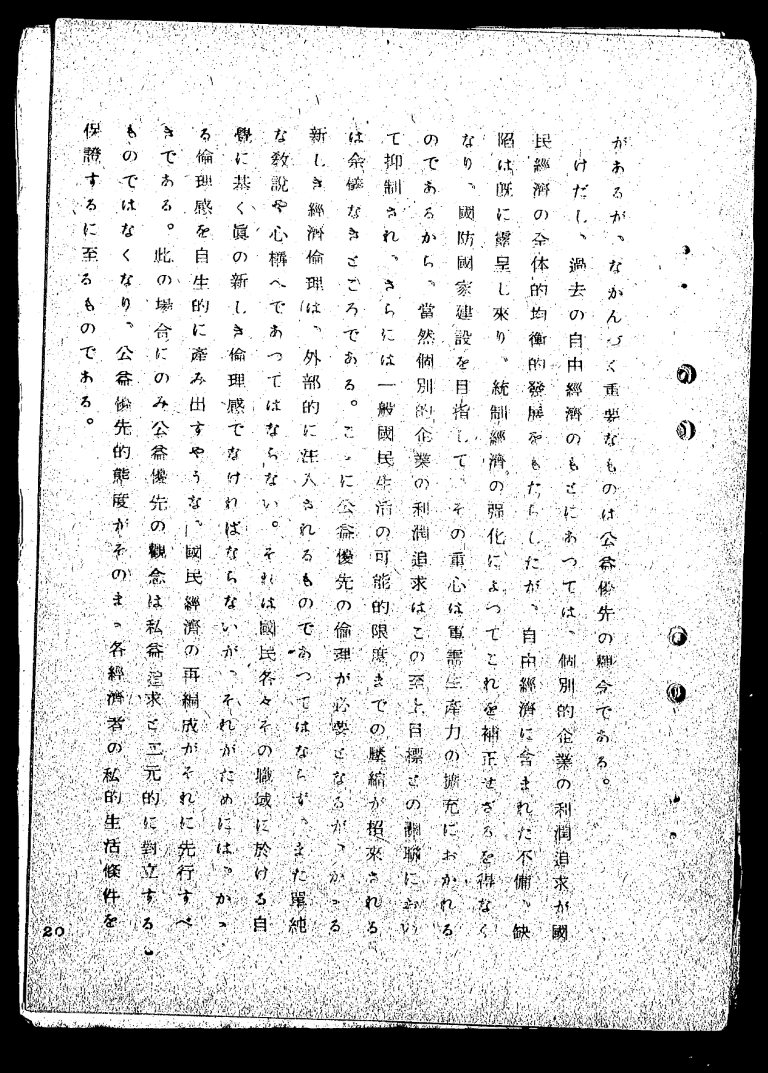 があるが、なかんづく重要なものは公益優先の観念である。
けだし、過去の自由經濟のもとにあつては、個別的企業の利潤追求が國
民經濟の全体的均衡的發展をもたらしたが、自由經濟に含まれた不備、缺
陷は既に露呈し來り、統制經濟の强化によつてこれを補正せざるを得なく
なり、國防國家建設を目指して、その重心は軍需生産力の擴充におかれる
のであるから、當然個別的企業の利潤追求はこの至上目標との關聯におい
て抑制され、さらには一般國民生活の可能的限度までの壓縮が招來される
は余儀なきところである。こゝに公益優先の倫理が必要となるが、かゝる
新しき經濟倫理は、外部的に注入されるものであつてはならず、また單純
な敎說や心構へであつてはならない。それは國民各々その職域に於ける自
覺に基く眞の新しき倫理感でなければならないが、それがためには、かゝ
る倫理感を自生的に產み出すやうな、國民經濟の再編成がそれに先行すべ
きである。此の場合にのみ公益優先の觀念は私益追求と二元的に對立する
ものではなくなり、公益優先的態度がそのまゝ各經濟者の私的生活條件を
保證するに至るものである。
20